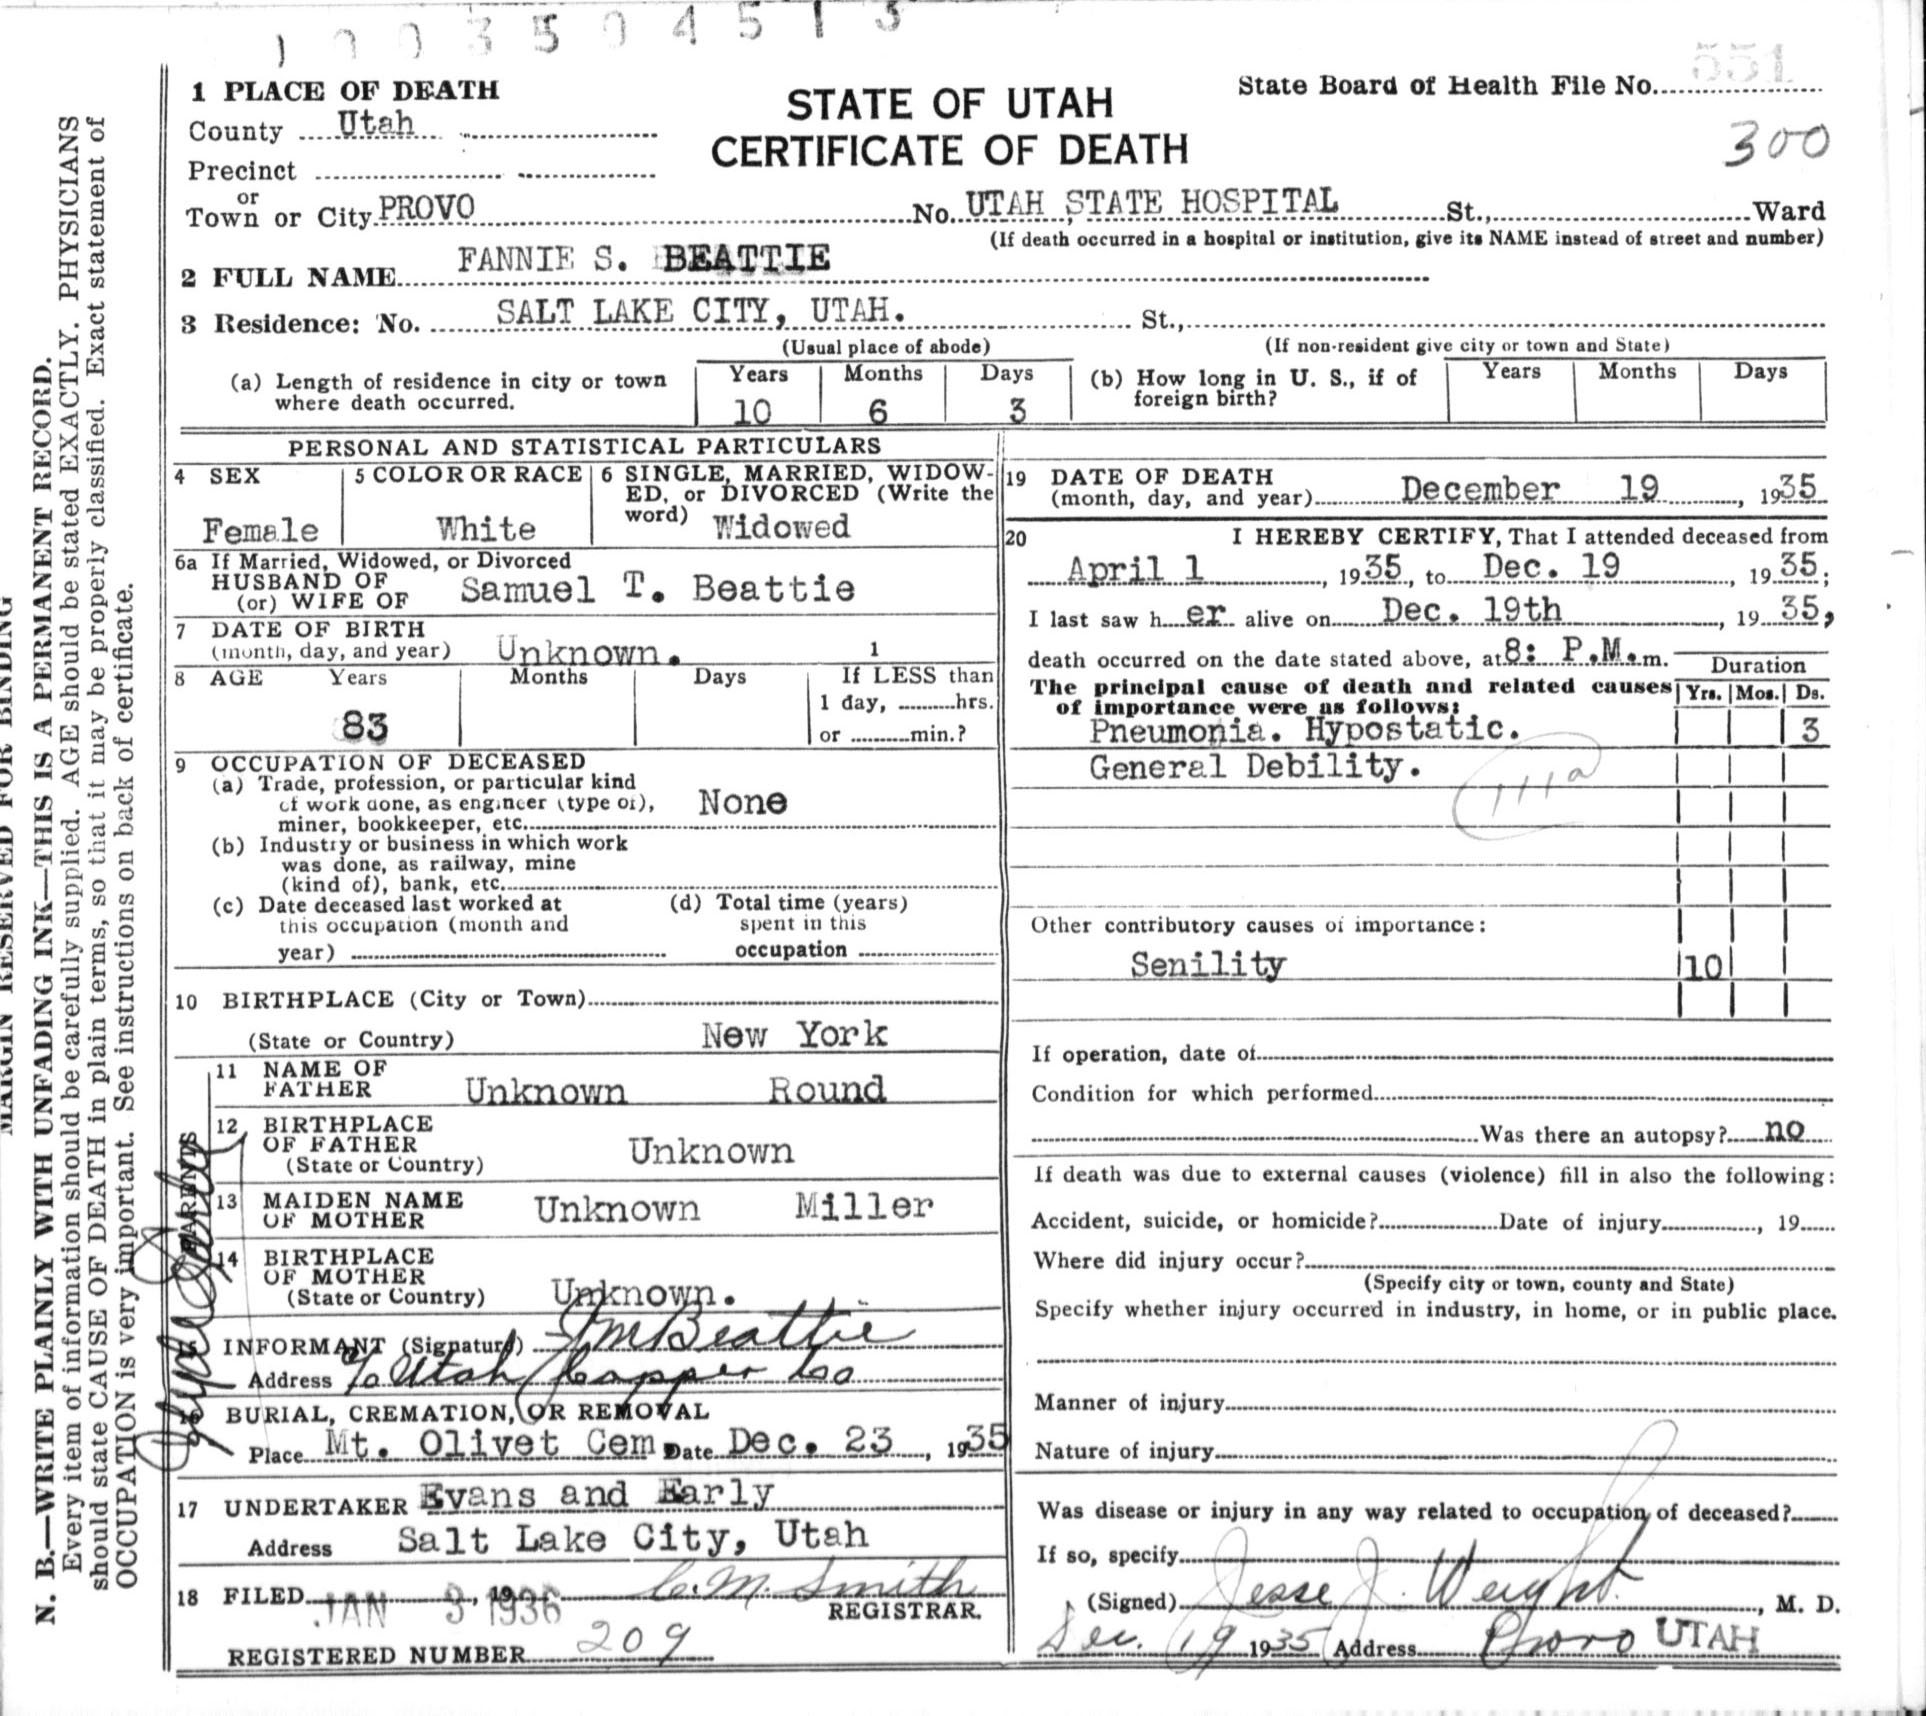 1 0 0 3 5 0 4 5 1 3
1 PLACE OF DEATH
County Utah
Precinct
or
Town or City PROVO No. UTAH STATE HOSPITAL St., Ward
(If death occurred in a hospital or institution, give its NAME instead of street and number)
STATE OF UTAH
CERTIFICATE OF DEATH
State Board of Health File No. 551
300
2 FULL NAME FANNIE S. BEATTIE
3 Residence: No. SALT LAKE CITY, UTAH. St.,
(Usual place of abode) (If non-resident give city or town and State)
(a) Length of residence in city or town where death occurred. Years 10 Months 6 Days 3
(b) How long in U. S., if of foreign birth? Years Months Days
PERSONAL AND STATISTICAL PARTICULARS
4 SEX Female
5 COLOR OR RACE White
6 SINGLE, MARRIED, WIDOW-
ED, or DIVORCED (Write the
word) Widowed
6a If Married, Widowed, or Divorced
HUSBAND OF
(or) WIFE OF Samuel T. Beattie
7 DATE OF BIRTH
(month, day, and year) Unknown. 1
8 AGE Years Months Days If LESS than
83 1 day, hrs.
or min.?
9 OCCUPATION OF DECEASED
(a) Trade, profession, or particular kind
of work done, as engineer (type of), None
miner, bookkeeper, etc.
(b) Industry or business in which work
was done, as railway, mine
(kind of), bank, etc.
(c) Date deceased last worked at
this occupation (month and
year)
(d) Total time (years)
spent in this
occupation
10 BIRTHPLACE (City or Town)
(State or Country) New York
PARENTS
11 NAME OF
FATHER Unknown Round
12 BIRTHPLACE
OF FATHER
(State or Country) Unknown
13 MAIDEN NAME
OF MOTHER Unknown Miller
14 BIRTHPLACE
OF MOTHER
(State or Country) Unknown.
15 INFORMANT (Signature) Beattie
Address c/o Utah Copper Co
16 BURIAL, CREMATION, OR REMOVAL
Place Mt. Olivet Cem. Date Dec. 23, 1935
17 UNDERTAKER Evans and Early
Address Salt Lake City, Utah
18 FILED JAN 3 1936, 19 C. M. Smith
REGISTRAR.
REGISTERED NUMBER 209
19 DATE OF DEATH
(month, day, and year) December 19, 1935
20 I HEREBY CERTIFY, That I attended deceased from
April 1, 1935, to Dec. 19, 1935;
I last saw her alive on Dec. 19th, 1935,
death occurred on the date stated above, at 8: P.M. m.
Duration
The principal cause of death and related causes Yrs. Mos. Ds.
of importance were as follows:
Pneumonia. Hypostatic. 3
General Debility.
111a
Other contributory causes of importance:
Senility 10
If operation, date of
Condition for which performed
Was there an autopsy? no
If death was due to external causes (violence) fill in also the following:
Accident, suicide, or homicide? Date of injury, 19
Where did injury occur?
(Specify city or town, county and State)
Specify whether injury occurred in industry, in home, or in public place.
Manner of injury
Nature of injury
Was disease or injury in any way related to occupation of deceased?
If so, specify
(Signed) Jesse J. Weight, M. D.
Dec. 19 1935 Address Provo UTAH
MARGIN RESERVED FOR BINDING
N. B.—WRITE PLAINLY WITH UNFADING INK—THIS IS A PERMANENT RECORD.
Every item of information should be carefully supplied. AGE should be stated EXACTLY. PHYSICIANS
should state CAUSE OF DEATH in plain terms, so that it may be properly classified. Exact statement of
OCCUPATION is very important. See instructions on back of certificate.